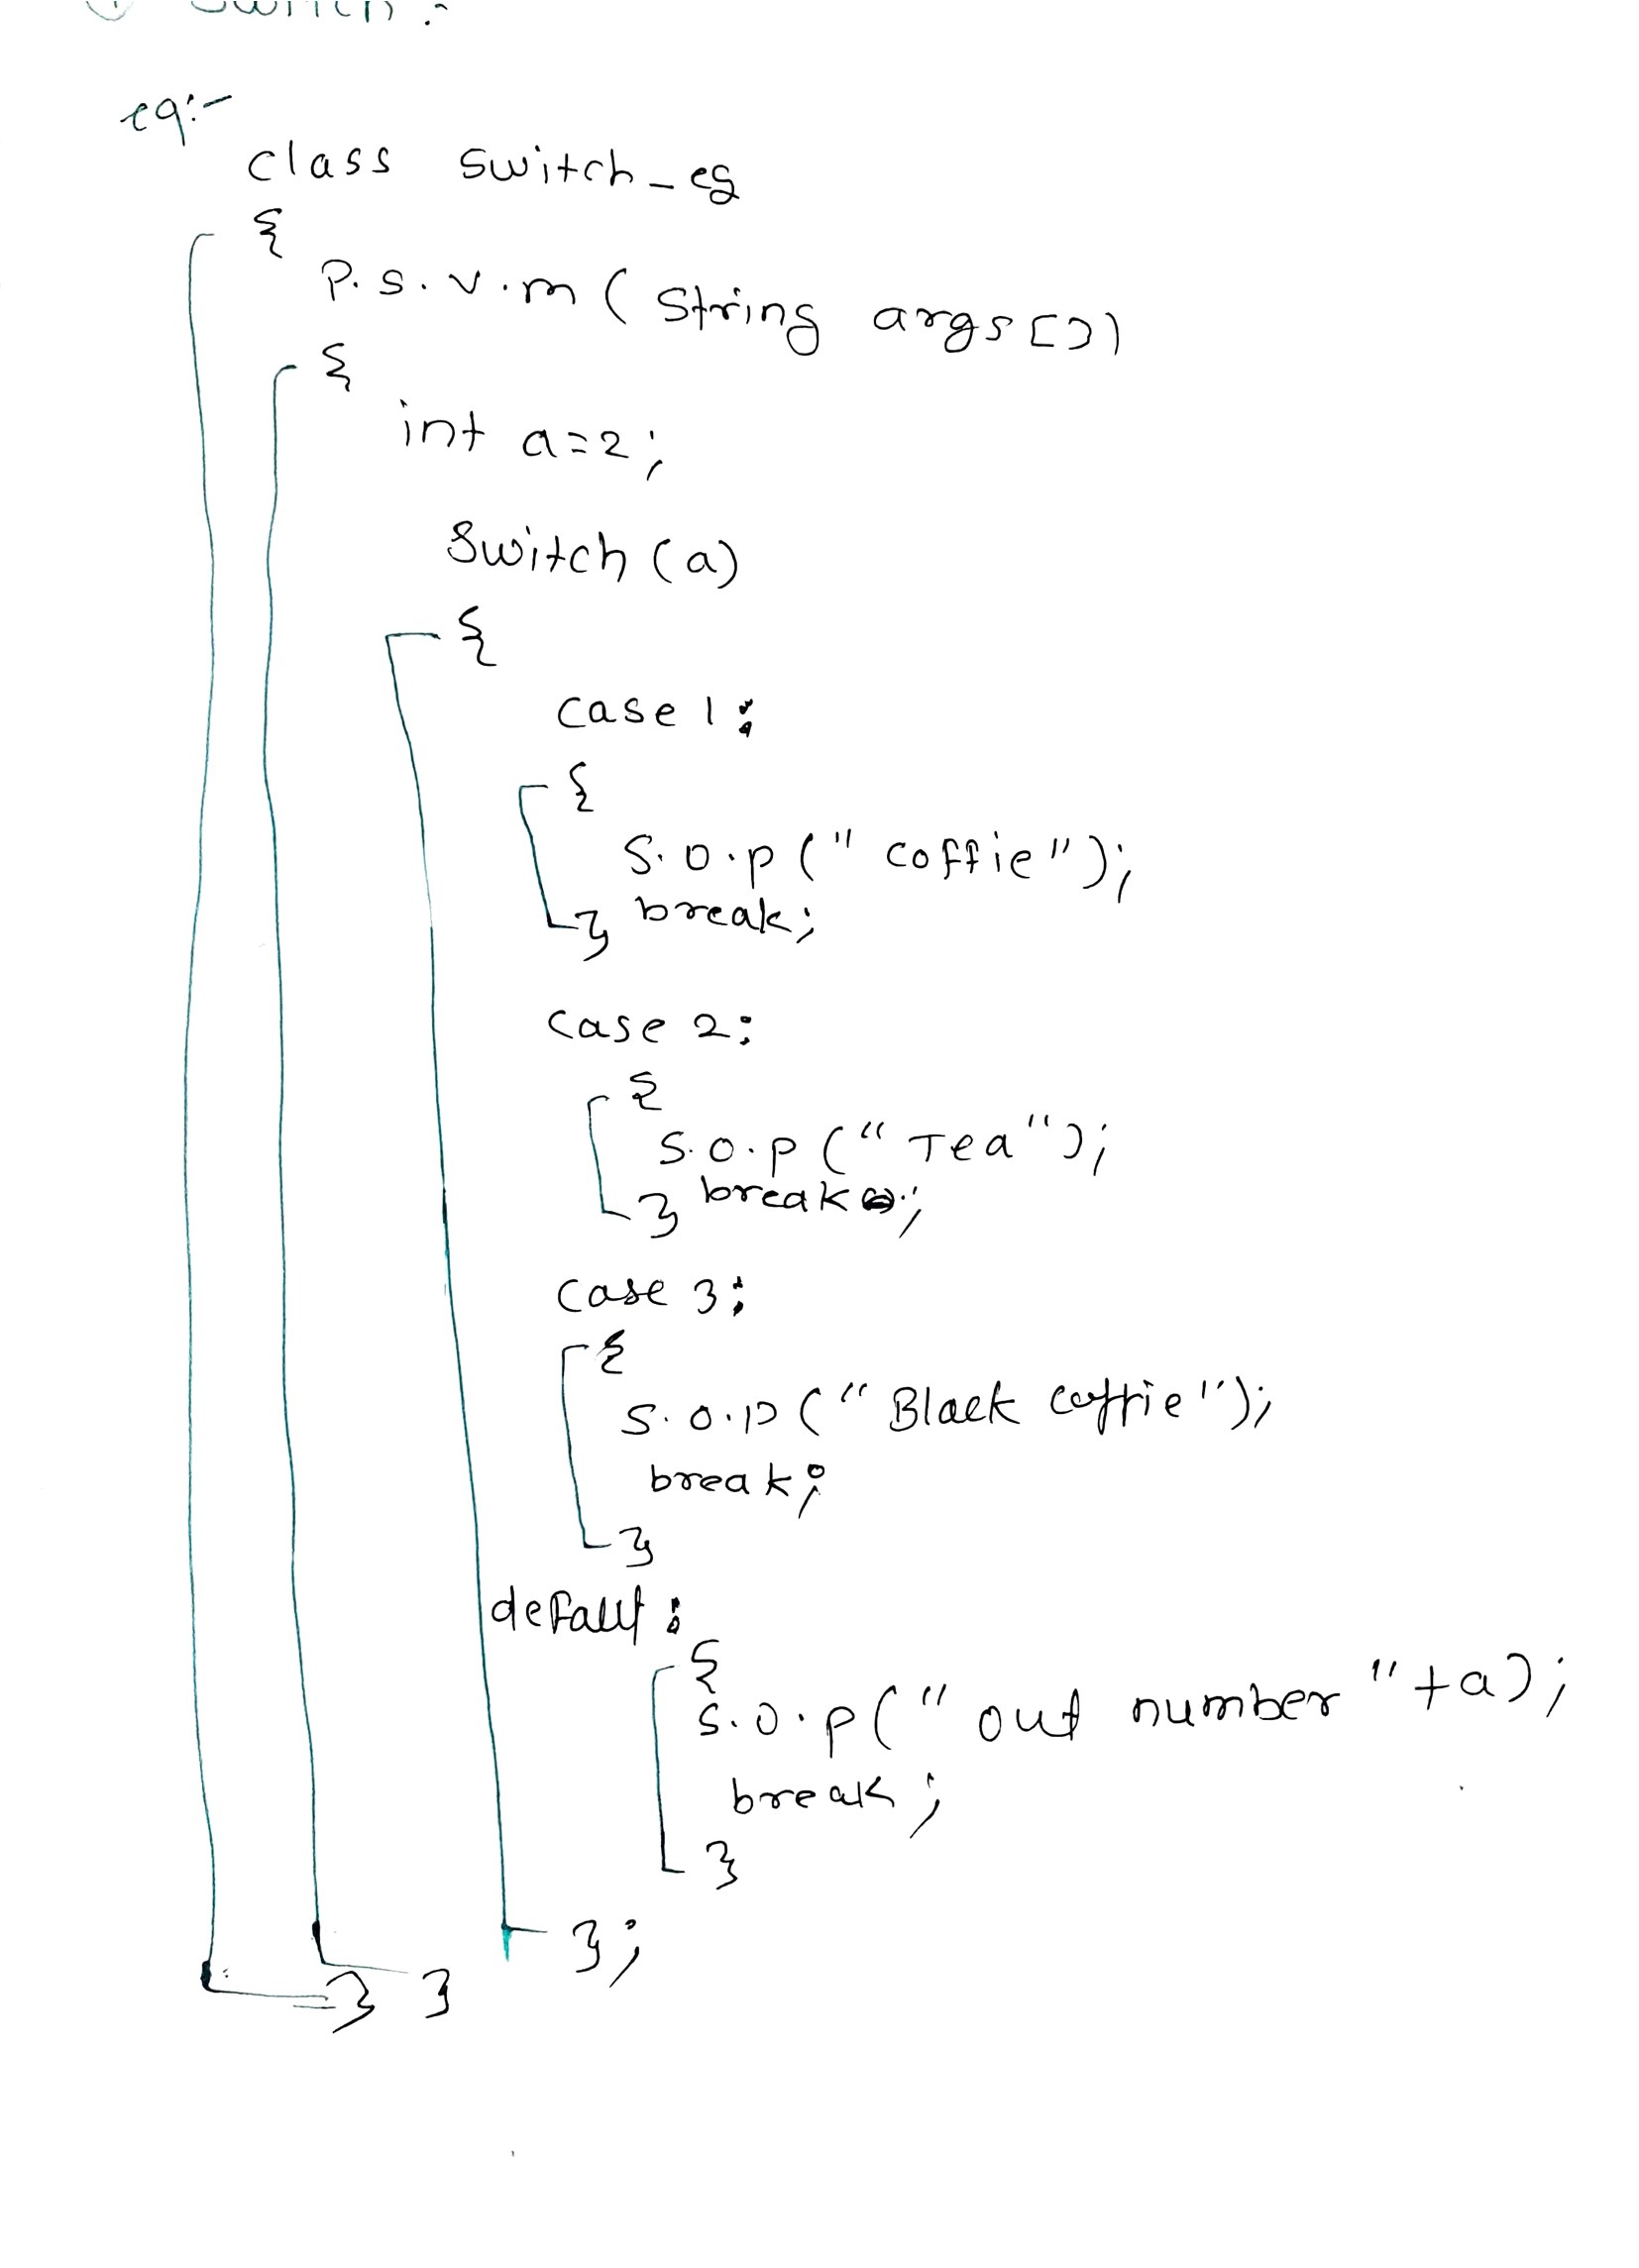 ① Switch :
eg:-
class switch_eg
{
P.S.V.m ( String args [])
{
int a=2;
Switch (a)
{
case 1:
{
S.O.P (" coffie");
} break;
case 2:
{
S.O.P (" Tea");
} break;
case 3:
{
S.O.P (" Black coffie");
break;
}
default:
{
S.O.P (" out number "+a);
break;
}
};
} }